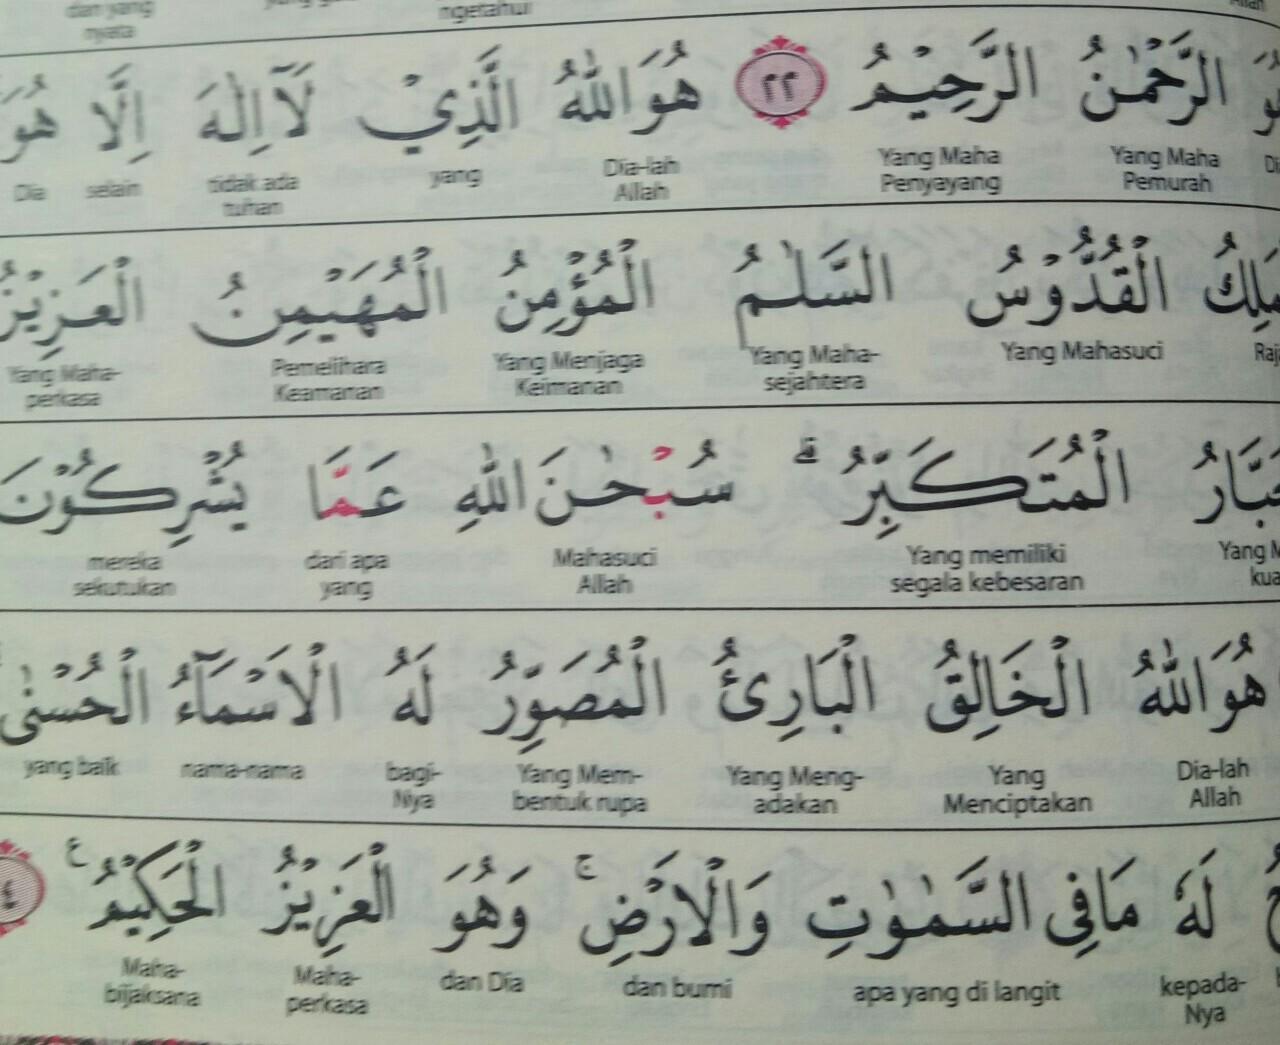 dan yang
nyata
ngetahui
الرَّحْمٰنُ الرَّحِيْمُ ٢٢ هُوَاللّٰهُ الَّذِيْ لَآاِلٰهَ اِلَّا هُوَ
Yang Maha Pemurah Yang Maha Penyayang Dia-lah Allah yang tidak ada tuhan selain Dia
الْقُدُّوْسُ السَّلٰمُ الْمُؤْمِنُ الْمُهَيْمِنُ الْعَزِيْزُ
Yang Mahasuci Yang Maha-sejahtera Yang Menjaga Keimanan Pemelihara Keamanan Yang Maha-perkasa
الْمُتَكَبِّرُ ۗ سُبْحٰنَ اللّٰهِ عَمَّا يُشْرِكُوْنَ
Yang memiliki segala kebesaran Mahasuci Allah dari apa yang mereka sekutukan
هُوَاللّٰهُ الْخَالِقُ الْبَارِئُ الْمُصَوِّرُ لَهُ الْاَسْمَاۤءُ الْحُسْنٰى
Dia-lah Allah Yang Menciptakan Yang Meng-adakan Yang Mem-bentuk rupa bagi-Nya nama-nama yang baik
لَهٗ مَافِى السَّمٰوٰتِ وَالْاَرْضِ ۚ وَهُوَ الْعَزِيْزُ الْحَكِيْمُ ع
kepada-Nya apa yang di langit dan bumi dan Dia Maha-perkasa Maha-bijaksana